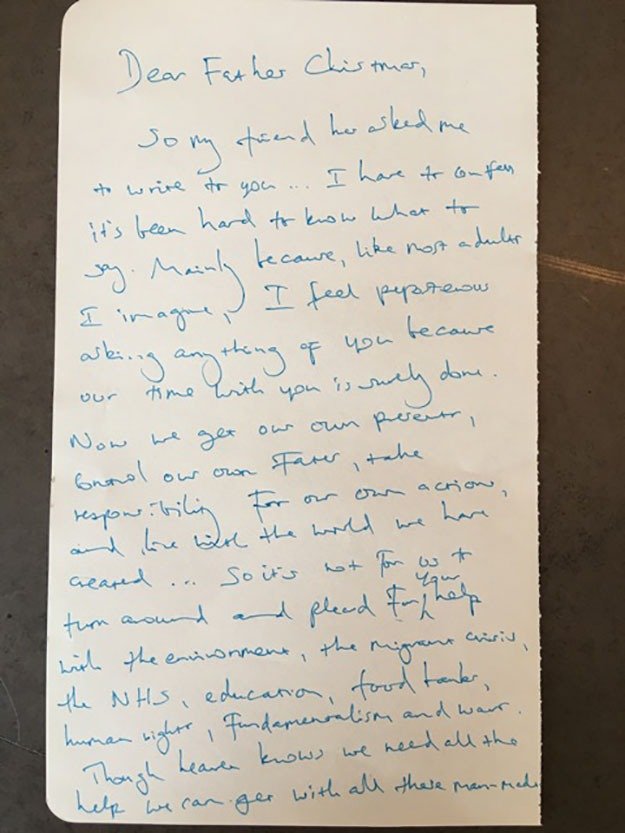 Dear Father Christmas,
So my friend has asked me
to write to you... I have to confess
it's been hard to know what to
say. Mainly because, like most adults
I imagine, I feel preposterous
asking anything of you because
our time with you is surely done.
Now we get our own presents,
control our own Fates, take
responsibility For our own actions,
and live with the world we have
created... So it's not For us to
turn around and plead For your help
with the environment, the migrant crisis,
the NHS, education, food banks,
human rights, Fundamentalism and wars.
Though heaven knows we need all the
help we can get with all these man-made